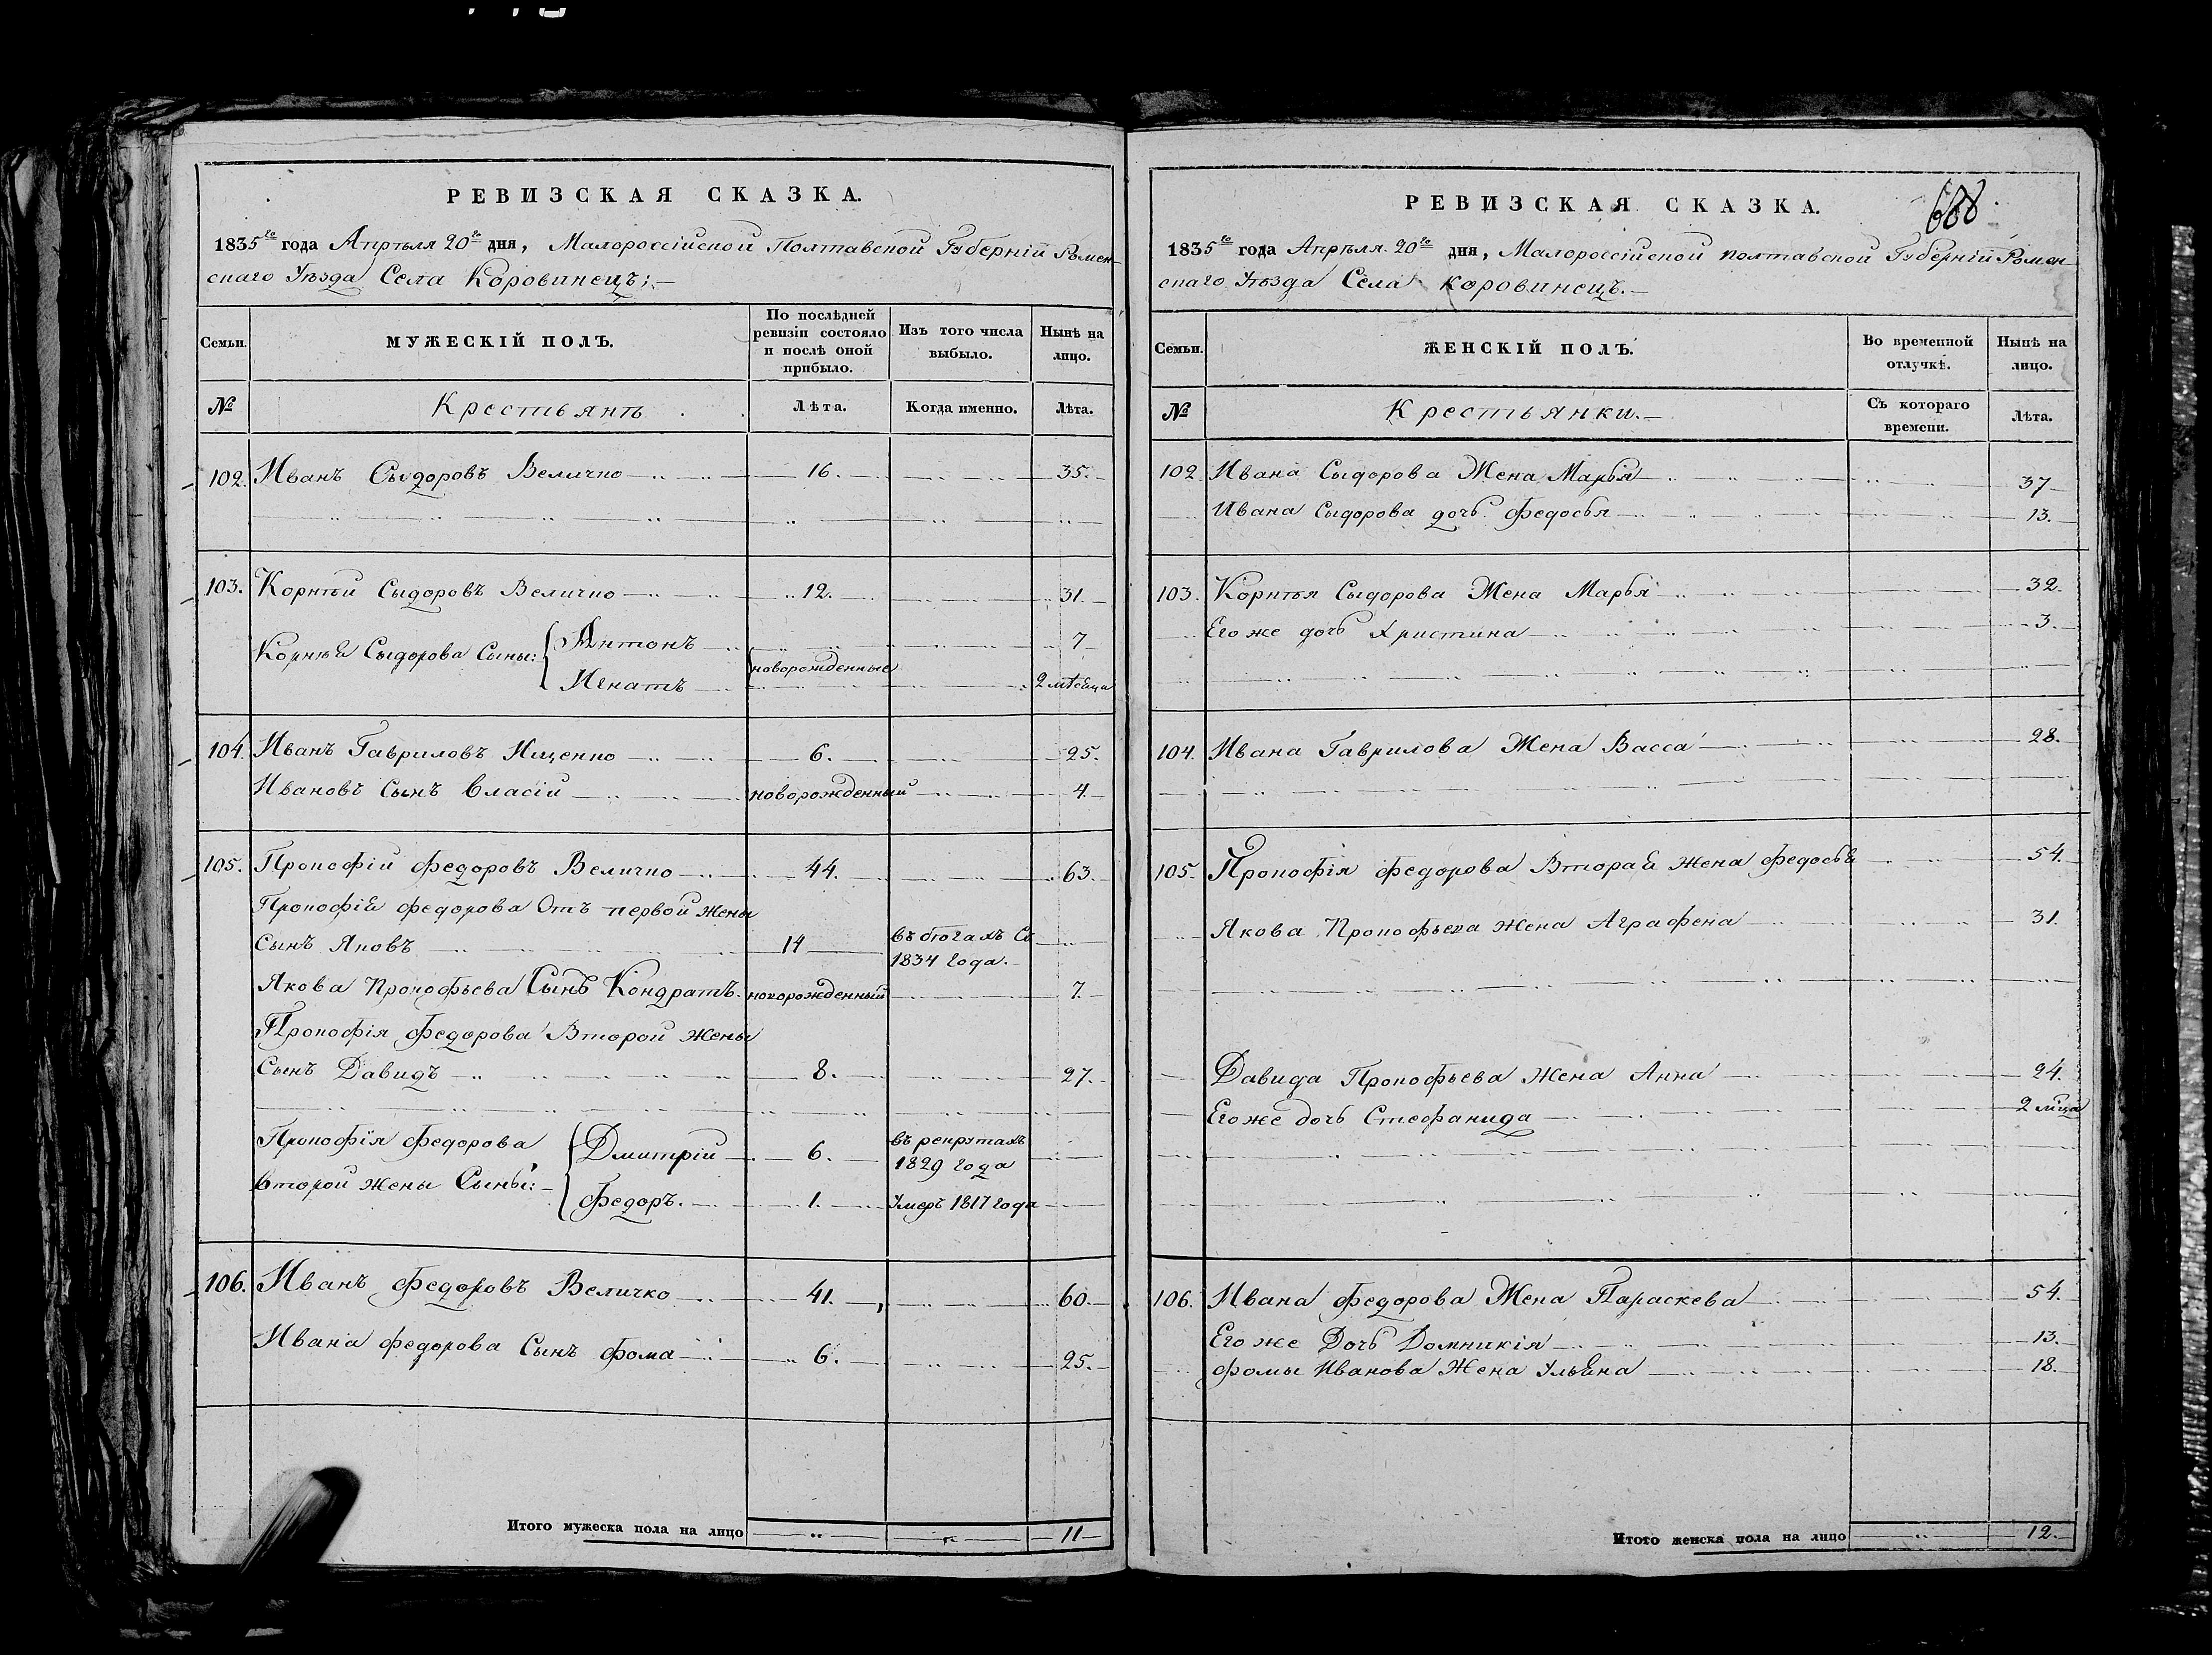 РЕВИЗСКАЯ СКАЗКА.
1835го года Апрѣля 20го дня, Малороссійской Полтавской Губерніи Ромен-
скаго Уѣзда Села Коровинецъ;—
Семьи.
МУЖЕСКІЙ ПОЛЪ.
По послѣдней ревизіи состояло и послѣ оной прибыло.
Изъ того числа выбыло.
Нынѣ на лицо.
№ Крестьянъ Лѣта. Когда именно. Лѣта.
102. Иванъ Сыдоровъ Величко 16. 35.
103. Корнѣй Сыдоровъ Величко 12. 31.
Корнѣя Сыдорова Сыны: Антонъ 7
новорожденные
Игнатъ 2 мѣсяца
104. Иванъ Гавриловъ Ищенко 6. 25.
Ивановъ Сынъ Власій новорожденный 4.
105. Прокофій Федоровъ Величко 44. 63.
Прокофія Федорова Отъ первой жены
Сынъ Яковъ 14 въ бѣгахъ Съ
1834 года.
Якова Прокофьева Сынъ Кондратъ новорожденный 7.
Прокофія Федорова Второй жены
Сынъ Давидъ 8. 27.
Прокофія Федорова Дмитрій 6. въ рекрутахъ
1829 года
второй жены Сыны: Федоръ. 1. Умеръ 1817 года
106. Иванъ Федоровъ Величко 41. 60.
Ивана Федорова Сынъ Фома 6. 25.
Итого мужеска пола на лицо 11
РЕВИЗСКАЯ СКАЗКА.
688
1835го года Апрѣля 20го дня, Малороссійской Полтавской Губерніи Ромен-
скаго Уѣзда Села Коровинецъ.—
Семьи.
ЖЕНСКІЙ ПОЛЪ.
Во временной отлучкѣ.
Нынѣ на лицо.
№ Крестьянки.— Съ котораго времени. Лѣта.
102 Ивана Сыдорова Жена Марья 37
Ивана Сыдорова дочь Федосья 13.
103. Корнѣя Сыдорова Жена Марья 32.
Его же дочь Христина 3.
104. Ивана Гаврилова Жена Васса 28.
105. Прокофія Федорова Вторая жена Федосья 54.
Якова Прокофьева жена Аграфена 31.
Давида Прокофьева жена Анна 24.
Его же дочь Стефанида 2 мѣца
106. Ивана Федорова Жена Параскева 54.
Его же Дочь Домникія 13.
Фомы Иванова Жена Ульяна 18.
Итого женска пола на лицо 12.